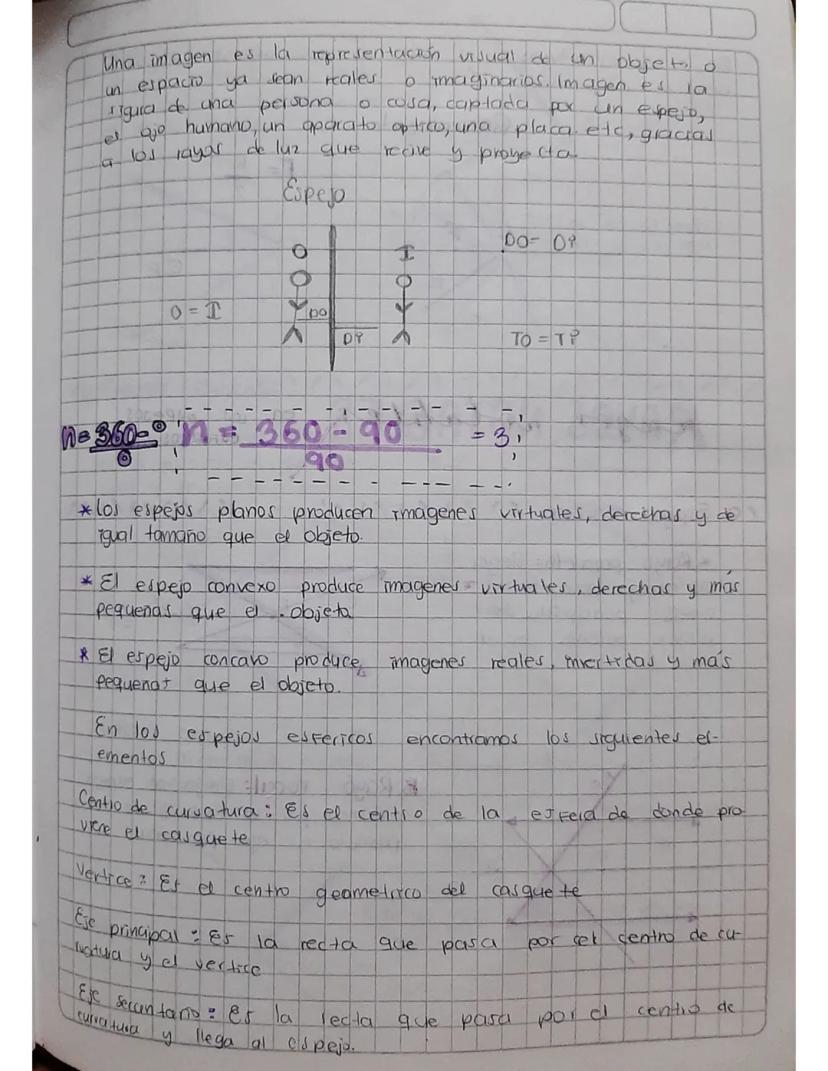 Una imagen es la representación visual de un objeto o
un espacio ya sean reales o imaginarios. Imagen es la
figura de una persona o cosa, captada por un espejo,
el ojo humano, un aparato optico, una placa etc, gracias
a los rayos de luz que recive y proyecta.
Espejo
O I DO= DI
O = I DO
DI TO = TI
n= 360-θ / θ n = 360 - 90 / 90 = 3
* Los espejos planos producen imagenes virtuales, derechas y de
igual tamaño que el objeto.
* El espejo convexo produce imagenes virtuales, derechas y más
pequenas que el objeto
* El espejo concavo produce imagenes reales, invertidas y más
pequenas que el objeto.
En los espejos esfericos encontramos los siguientes el-
ementos
Centro de curvatura: Es el centro de la esfera de donde pro
viene el casquete
Vertice: Es el centro geometrico del casquete
Eje principal: Es la recta que pasa por cel centro de cu-
rvatura y el vertice
Eje secuntario: Es la recta que pasa por el centro de
curvatura y llega al espejo.